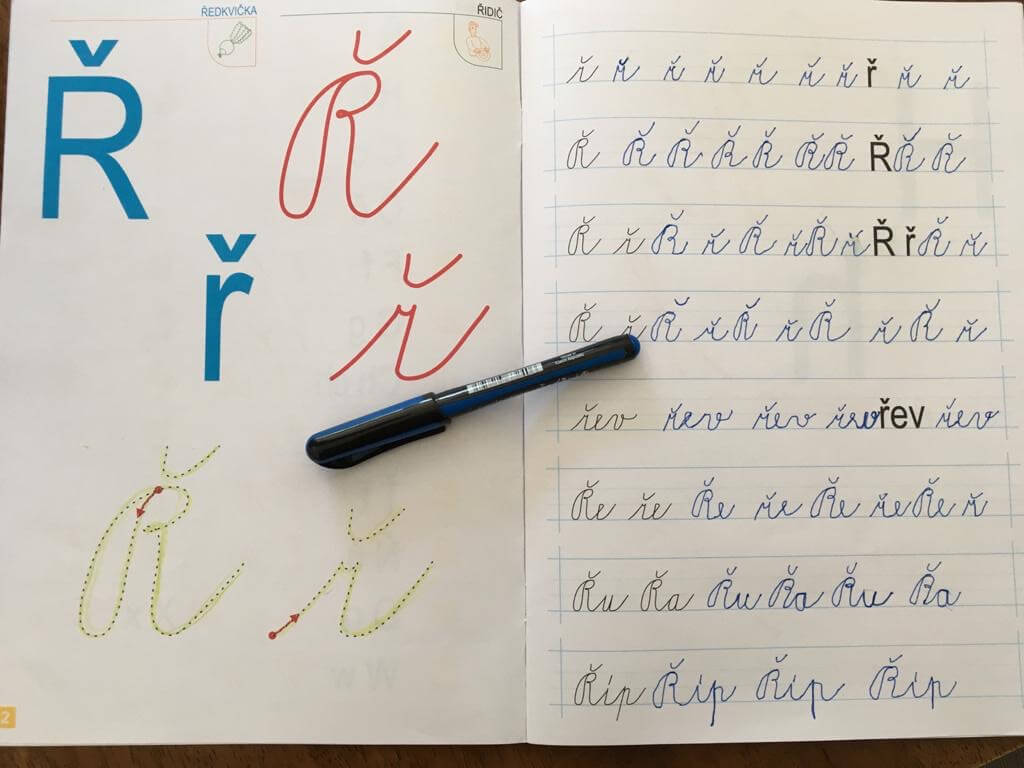 ŘEDKVIČKA
ŘIDIČ
Ř Ř
ř ř
Ř ř
2
ř ř ř ř ř ř ř ř ř ř
Ř Ř Ř Ř Ř Ř Ř Ř Ř Ř
Ř ř Ř ř Ř ř Ř ř Ř ř Ř ř
Ř ř Ř ř Ř ř Ř ř Ř ř
řev řev řev řev řev řev
Ře ře Ře ře Ře ře Ře ř
Řu Řa Řu Řa Řu Řa
Říp Říp Říp Říp